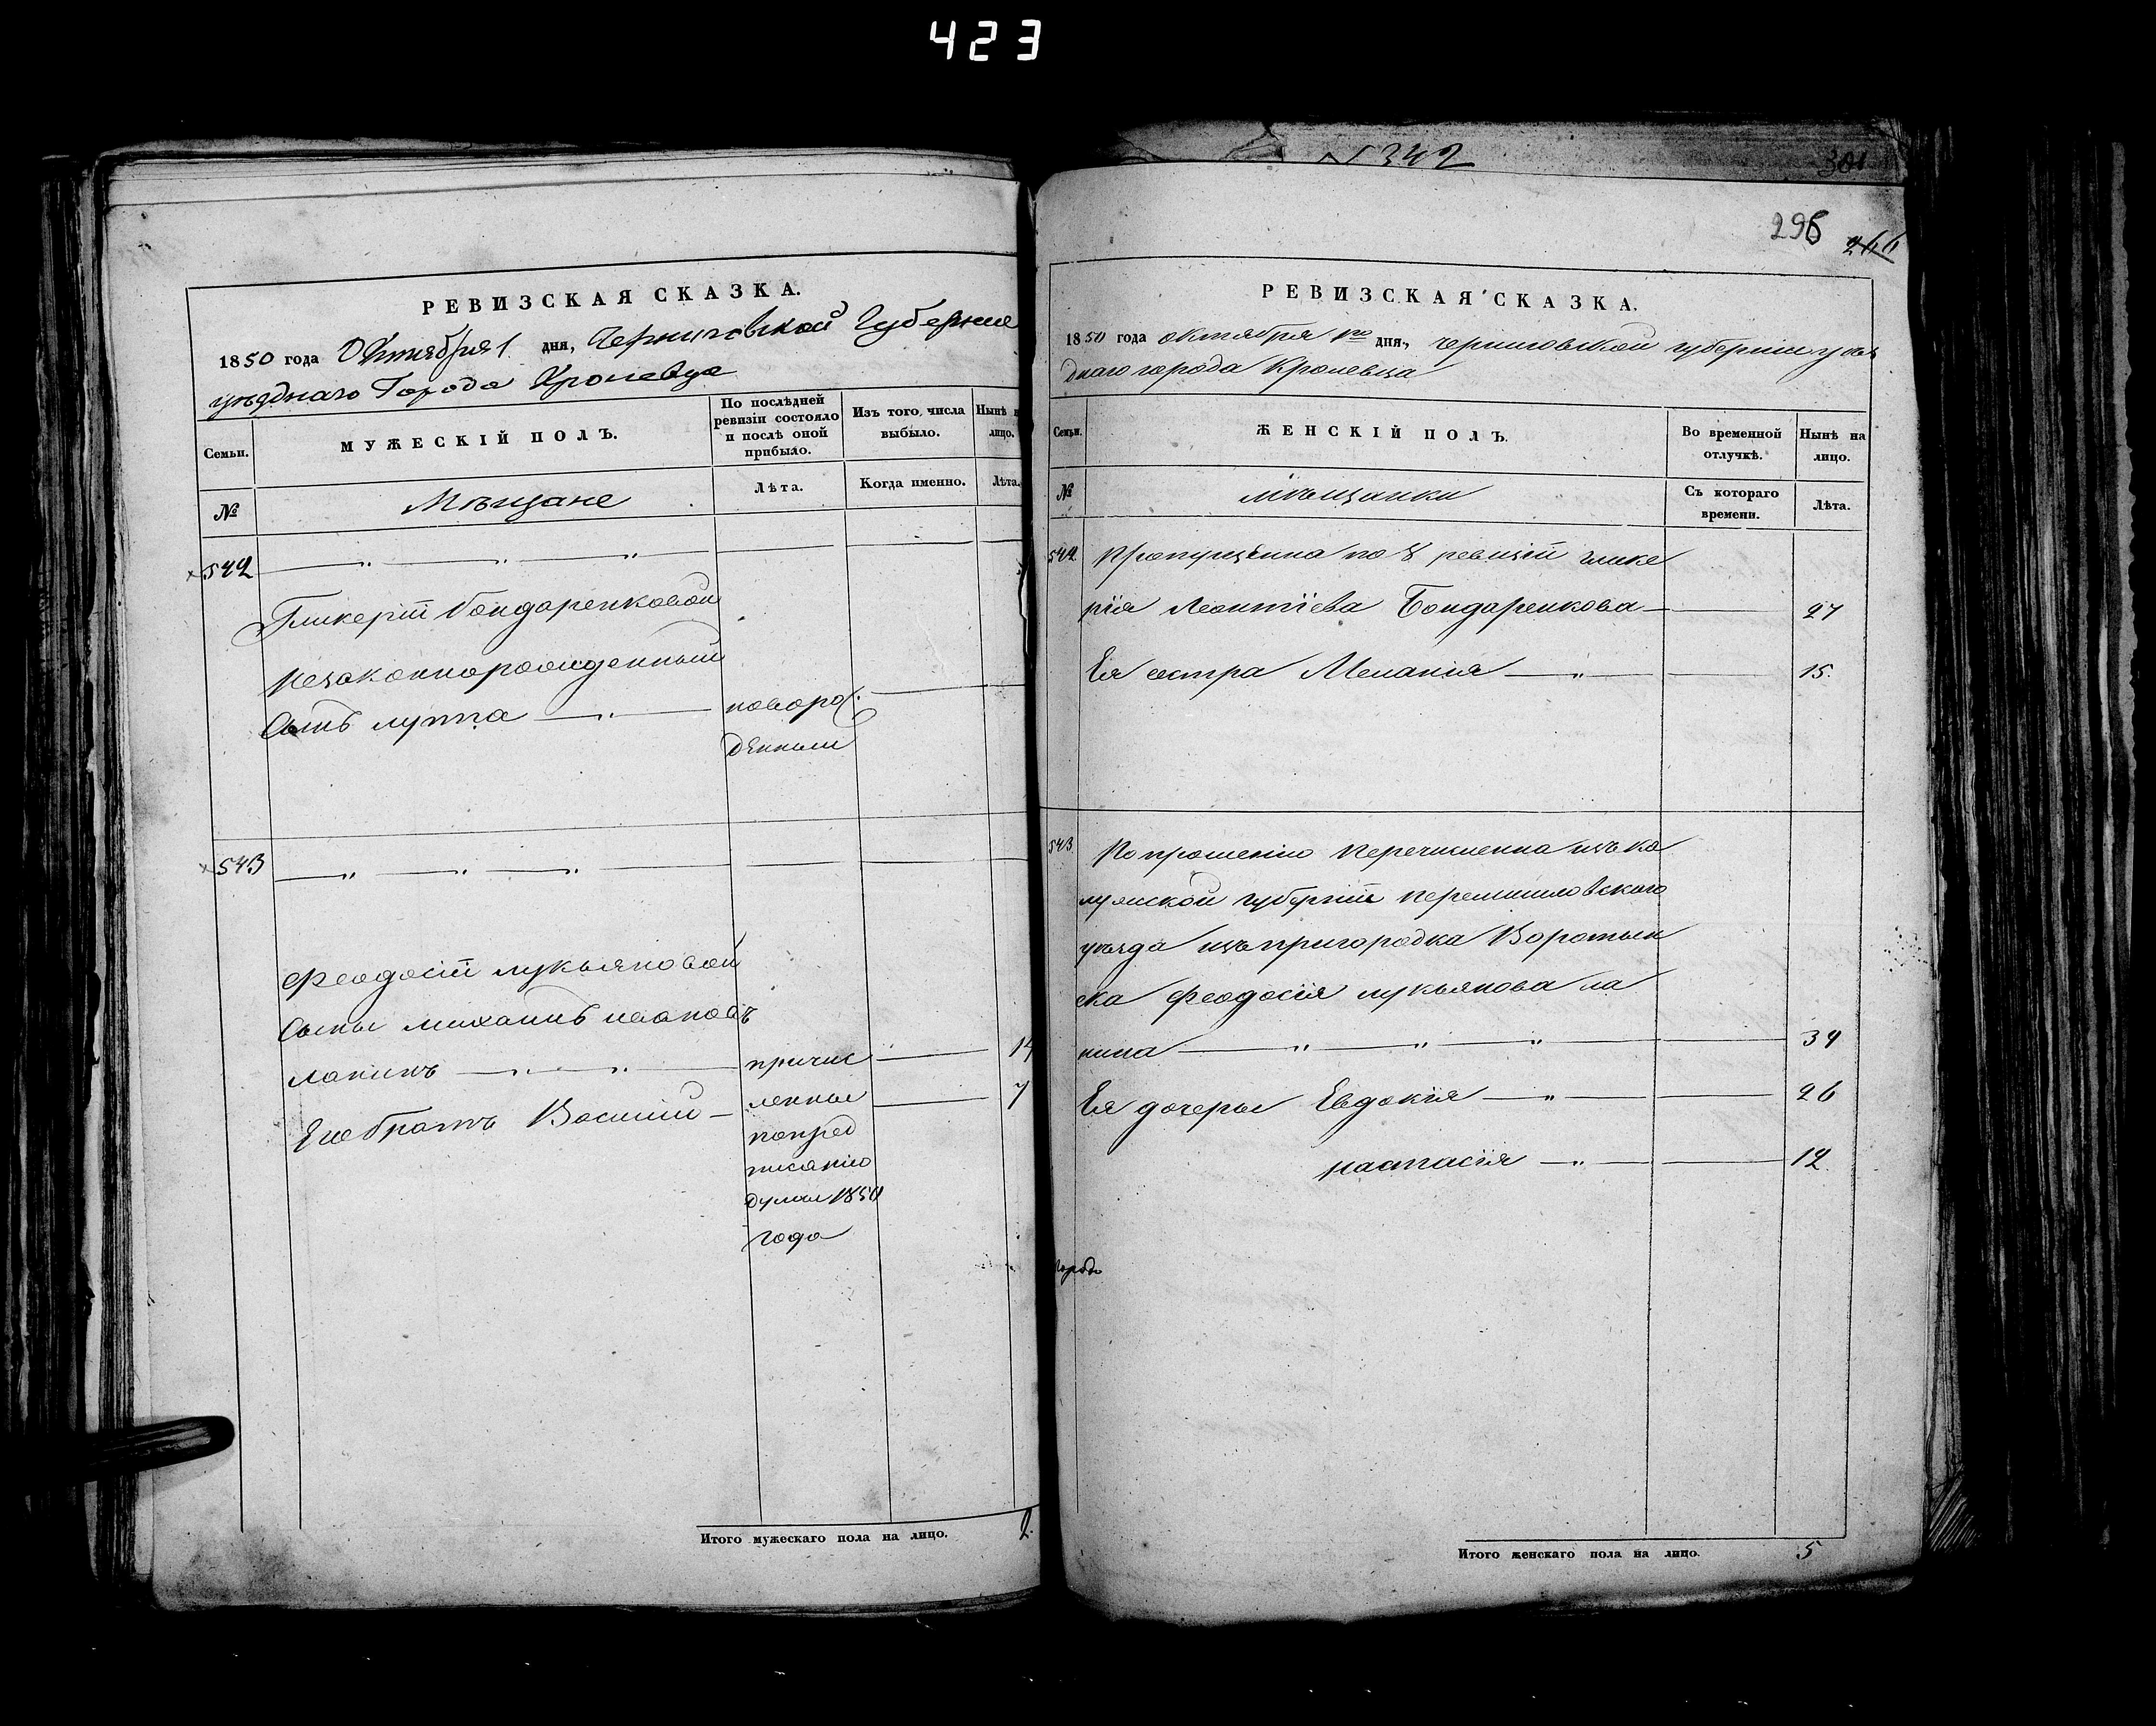 423
РЕВИЗСКАЯ СКАЗКА.
1850 года Октября 1 дня, Черниговской Губернии
уѣзднаго Города Кролевца
Семьи.
МУЖЕСКІЙ ПОЛЪ.
По послѣдней ревизіи состояло и послѣ оной прибыло.
Изъ того числа выбыло.
Нынѣ н
лицо.
№
Мѣщане
Лѣта.
Когда именно.
Лѣта.
542
Гликеріи Бондаренковой
незаконнорожденный
сынъ луппа
новорож
денный
543
Феодосіи лукьяновой
сыны михаилъ ивановъ
лапинъ
14
Его братъ Василий
7
причис
ленны
попред
писанію
думы 1850
года
Итого мужескаго пола на лицо.
2.
№342
301
296
266
РЕВИЗСКАЯ СКАЗКА.
1850 года октября 1го дня, черниговской губерніи уѣз
днаго города Кролевца
Семьи.
ЖЕНСКІЙ ПОЛЪ.
Во временной отлучкѣ.
Нынѣ на лицо.
№
мѣщанки
Съ котораго времени.
Лѣта.
542 Пропущенна по 8 ревизіи глике
рія Леонтіева Бондаренкова 27
Ея сестра Меланія 15.
543. По прошенію перечисленна изъ ка
лужской губерніи перемышловского
уѣзда изъ пригородка Воротын
ска феодосія лукьянова ла
пина 39
Ея дочеры Евдокія 26
настасія 12.
Итого женскаго пола на лицо.
5